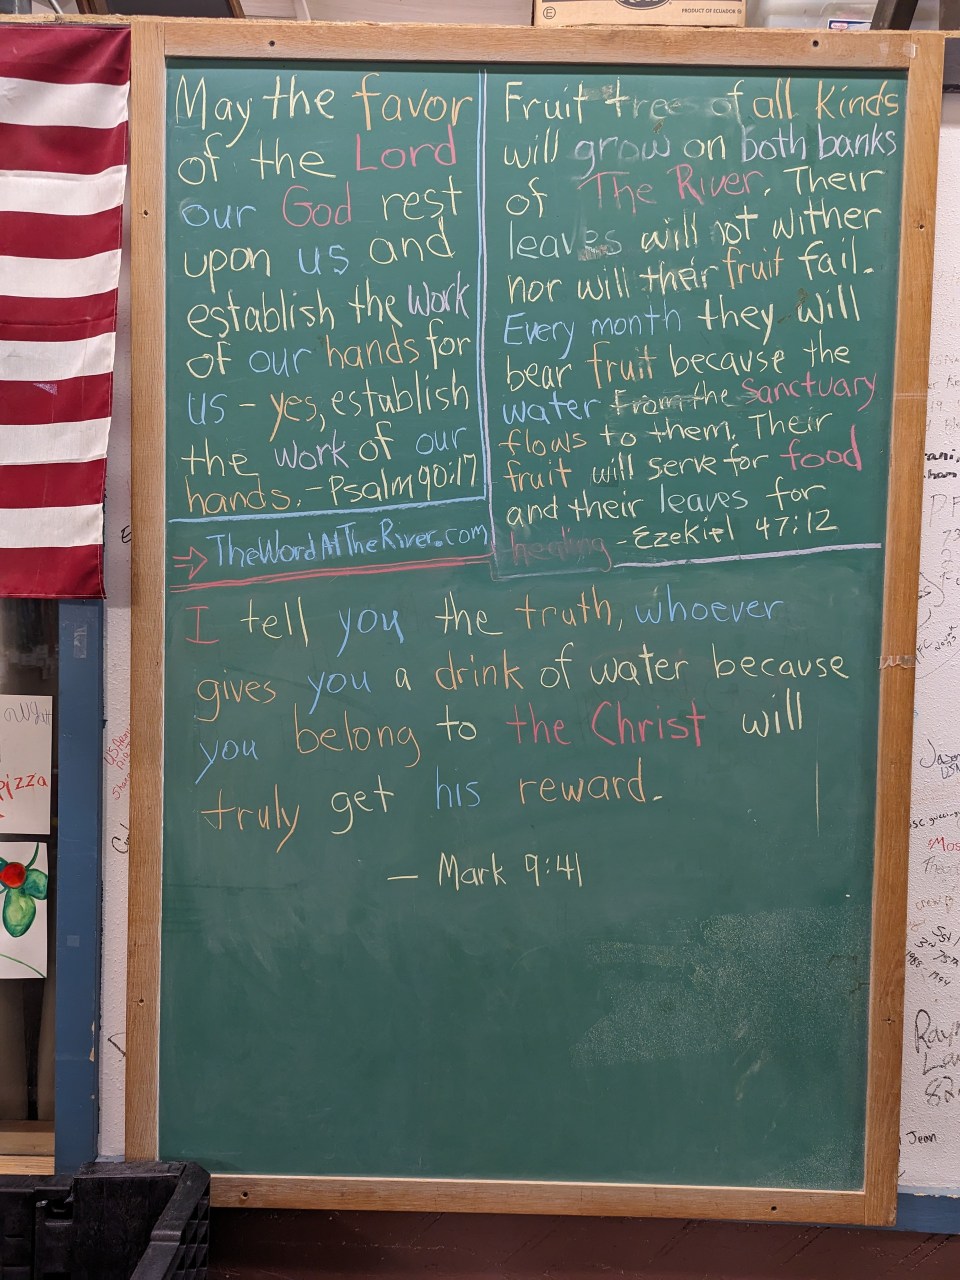 PRODUCT OF ECUADOR
May the favor
of the Lord
our God rest
upon us and
establish the work
of our hands for
us - yes, establish
the work of our
hands. - Psalm 90:17
→ TheWordAtTheRiver.com
Fruit trees of all kinds
will grow on both banks
of The River. Their
leaves will not wither
nor will their fruit fail.
Every month they will
bear fruit because the
water from the Sanctuary
flows to them. Their
fruit will serve for food
and their leaves for
healing - Ezekiel 47:12
I tell you the truth, whoever
gives you a drink of water because
you belong to the Christ will
truly get his reward.
— Mark 9:41
Pizza
Jean